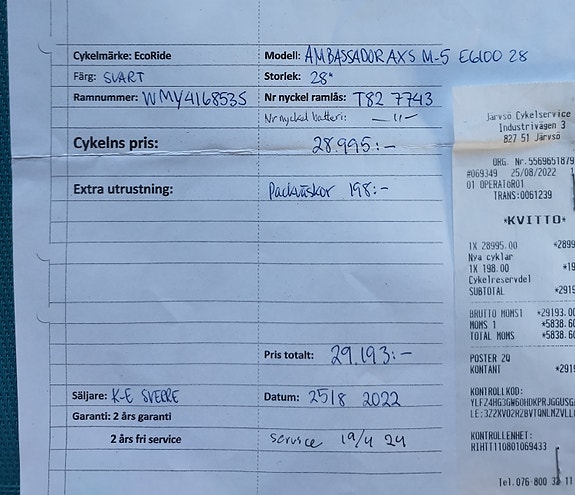 Cykelmärke: EcoRide Modell: AMBASSADOR AXS M-5 EG100 28
Färg: SVART Storlek: 28"
Ramnummer: WMY4168535 Nr nyckel ramlås: T82 7743
Nr nyckel batteri: —11—
Cykelns pris: 28.995:-
Extra utrustning: Packväskor 198:-
Pris totalt: 29.193:-
Säljare: K-E SVERRE Datum: 25/8 2022
Garanti: 2 års garanti
2 års fri service service 19/4 24
Järvsö Cykelservice
Industrivägen 3
827 51 Järvsö
ORG. Nr.5569651879
#069349 25/08/2022
01 OPERATOR01
TRANS:0061239
*KVITTO*
1X 28995.00 *2899
Nya cyklar
1X 198.00 *19
Cykelreservdel
SUBTOTAL *2919
BRUTTO MOMS1 *29193.00
MOMS 1 *5838.60
TOTAL MOMS *5838.60
POSTER 2Q
KONTANT *2919
KONTROLLKOD:
KONTROLLENHET:
RIHTT110801069433
Tel.076 800 32 11